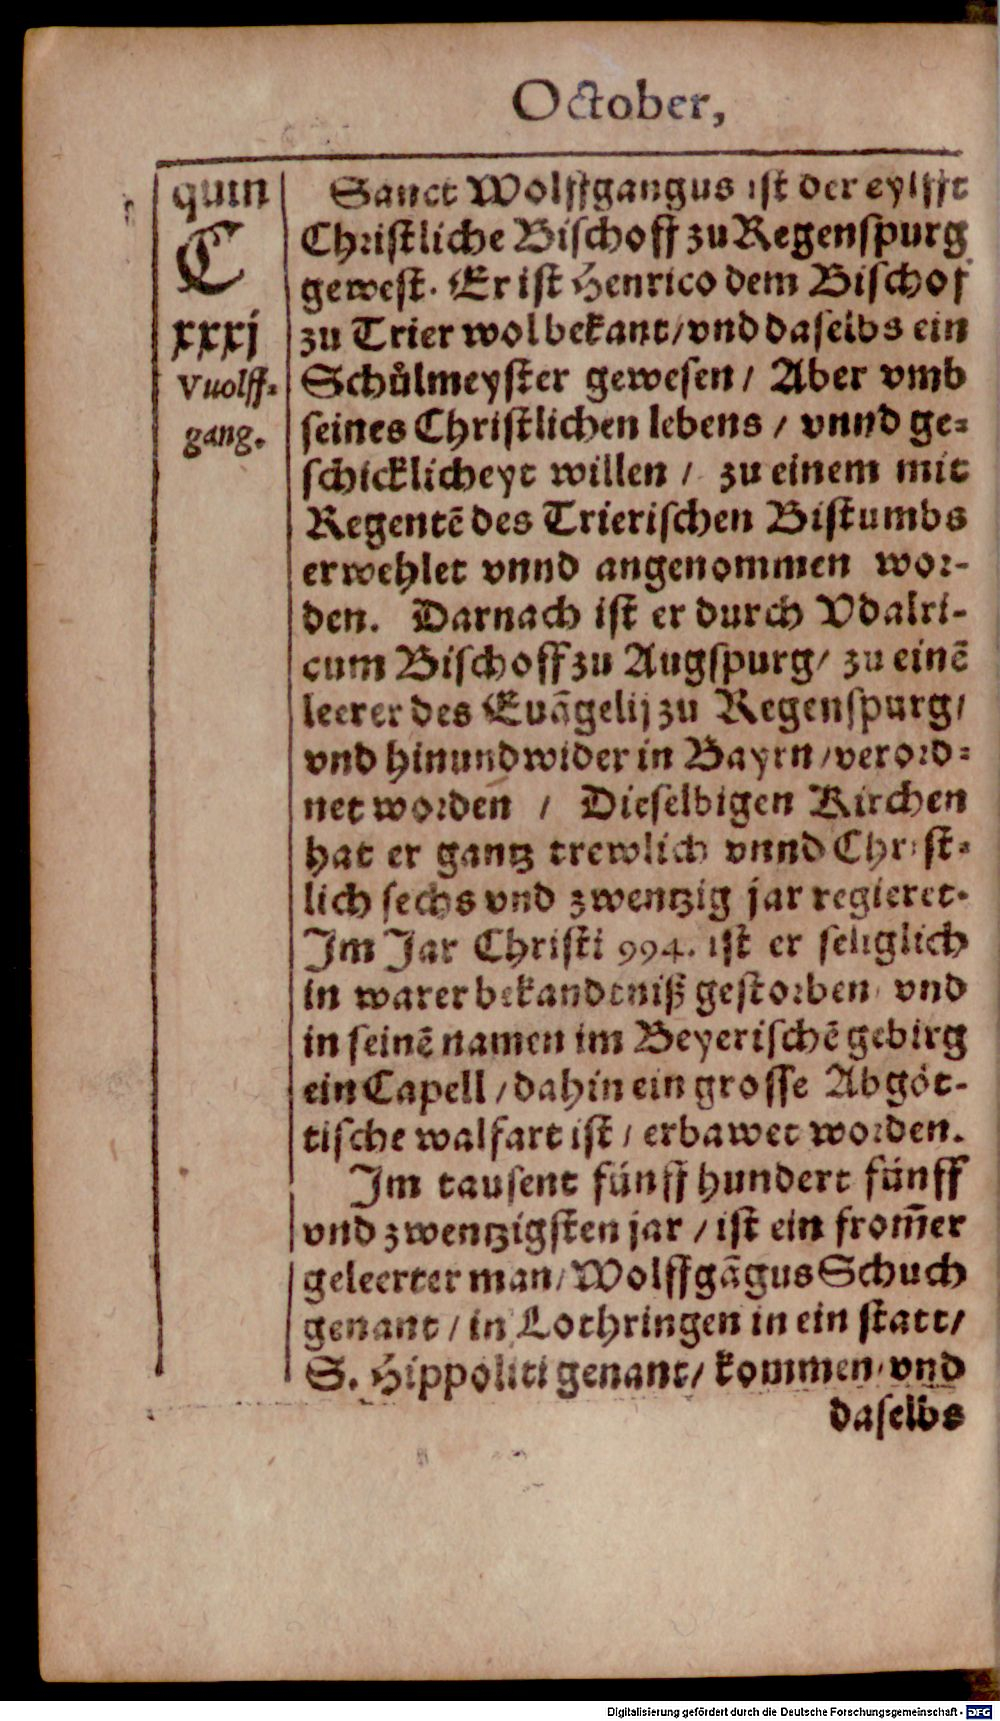 October,
quin
C
xxxj
Vuolff-
gang.
Sanct Wolffgangus ist der eylfft
Christliche Bischoff zu Regenspurg
gewest. Er ist Henrico dem Bischof
zu Trier wol bekant/ vnd daselbs ein
Schůlmeyster gewesen / Aber vmb
seines Christlichen lebens / vnnd ge-
schicklicheyt willen / zu einem mit
Regentē des Trierischen Bistumbs
erwehlet vnnd angenommen wor-
den. Darnach ist er durch Vdalri-
cum Bischoff zu Augspurg/ zu einē
leerer des Euāgelij zu Regenspurg/
vnd hin und wider in Bayrn / verord-
net worden / Dieselbigen Kirchen
hat er gantz trewlich vnnd Christ-
lich sechs vnd zwentzig jar regieret.
Im Jar Christi 994. ist er seliglich
in warer bekandtniß gestorben / vnd
in seinē namen im Beyerischē gebirg
ein Capell / dahin ein grosse Abgöt-
tische walfart ist / erbawet worden.
Im tausent fünff hundert fünff
vnd zwentzigsten jar / ist ein from̄er
geleerter man / Wolffgāgus Schuch
genant / in Lothringen in ein statt/
S. Hippoliti genant/ kommen / vnd
daselbs
Digitalisierung gefördert durch die Deutsche Forschungsgemeinschaft - DFG